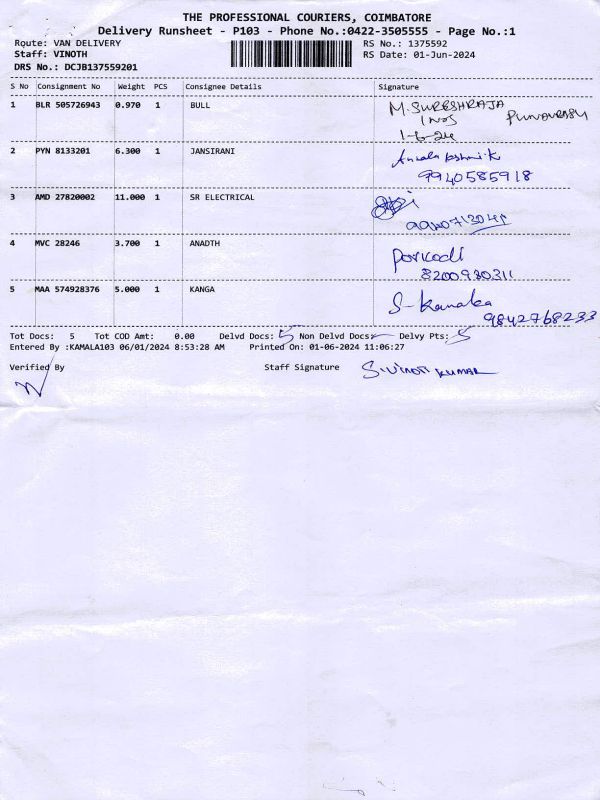 THE PROFESSIONAL COURIERS, COIMBATORE
Delivery Runsheet - P103 - Phone No.:0422-3505555 - Page No.:1
Route: VAN DELIVERY RS No.: 1375592
Staff: VINOTH RS Date: 01-Jun-2024
DRS No.: DCJB137559201
S No Consignment No Weight PCS Consignee Details Signature
1 BLR 505726943 0.970 1 BULL M. SURESHRAJA
1-6-24
2 PYN 8133201 6.300 1 JANSIRANI
9940585918
3 AMD 27820002 11.000 1 SR ELECTRICAL
4 MVC 28246 3.700 1 ANADTH Porkodi
8200980311
5 MAA 574928376 5.000 1 KANGA S-Kanaka
9842768233
Tot Docs: 5 Tot COD Amt: 0.00 Delvd Docs: 5 Non Delvd Docs: - Delvy Pts: 5
Entered By :KAMALA103 06/01/2024 8:53:28 AM Printed On: 01-06-2024 11:06:27
Verified By Staff Signature S.VINOTH KUMAR